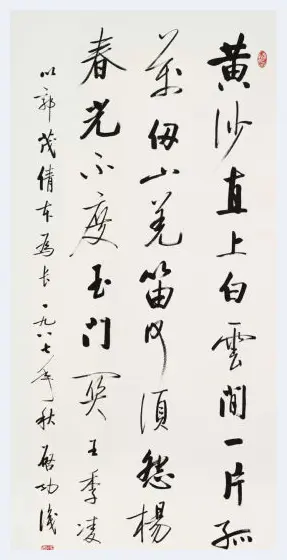 黄沙直上白雲間一片孤
萬仞山羌笛何須怨楊
春光不度玉門關王季凌
以郭茂倩本為長一九八七年秋啓功識